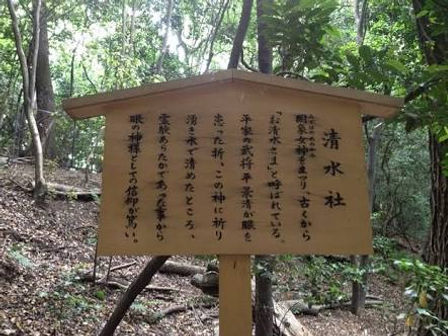 清水社
みずはのめのかみ
罔象女神を祀り、古くから
「お清水さま」と呼ばれている。
平家の武将平景清が眼を
患った折、この神に祈り
湧き水で清めたところ、
霊験あらたかであった事から
眼の神様としての信仰が篤い。